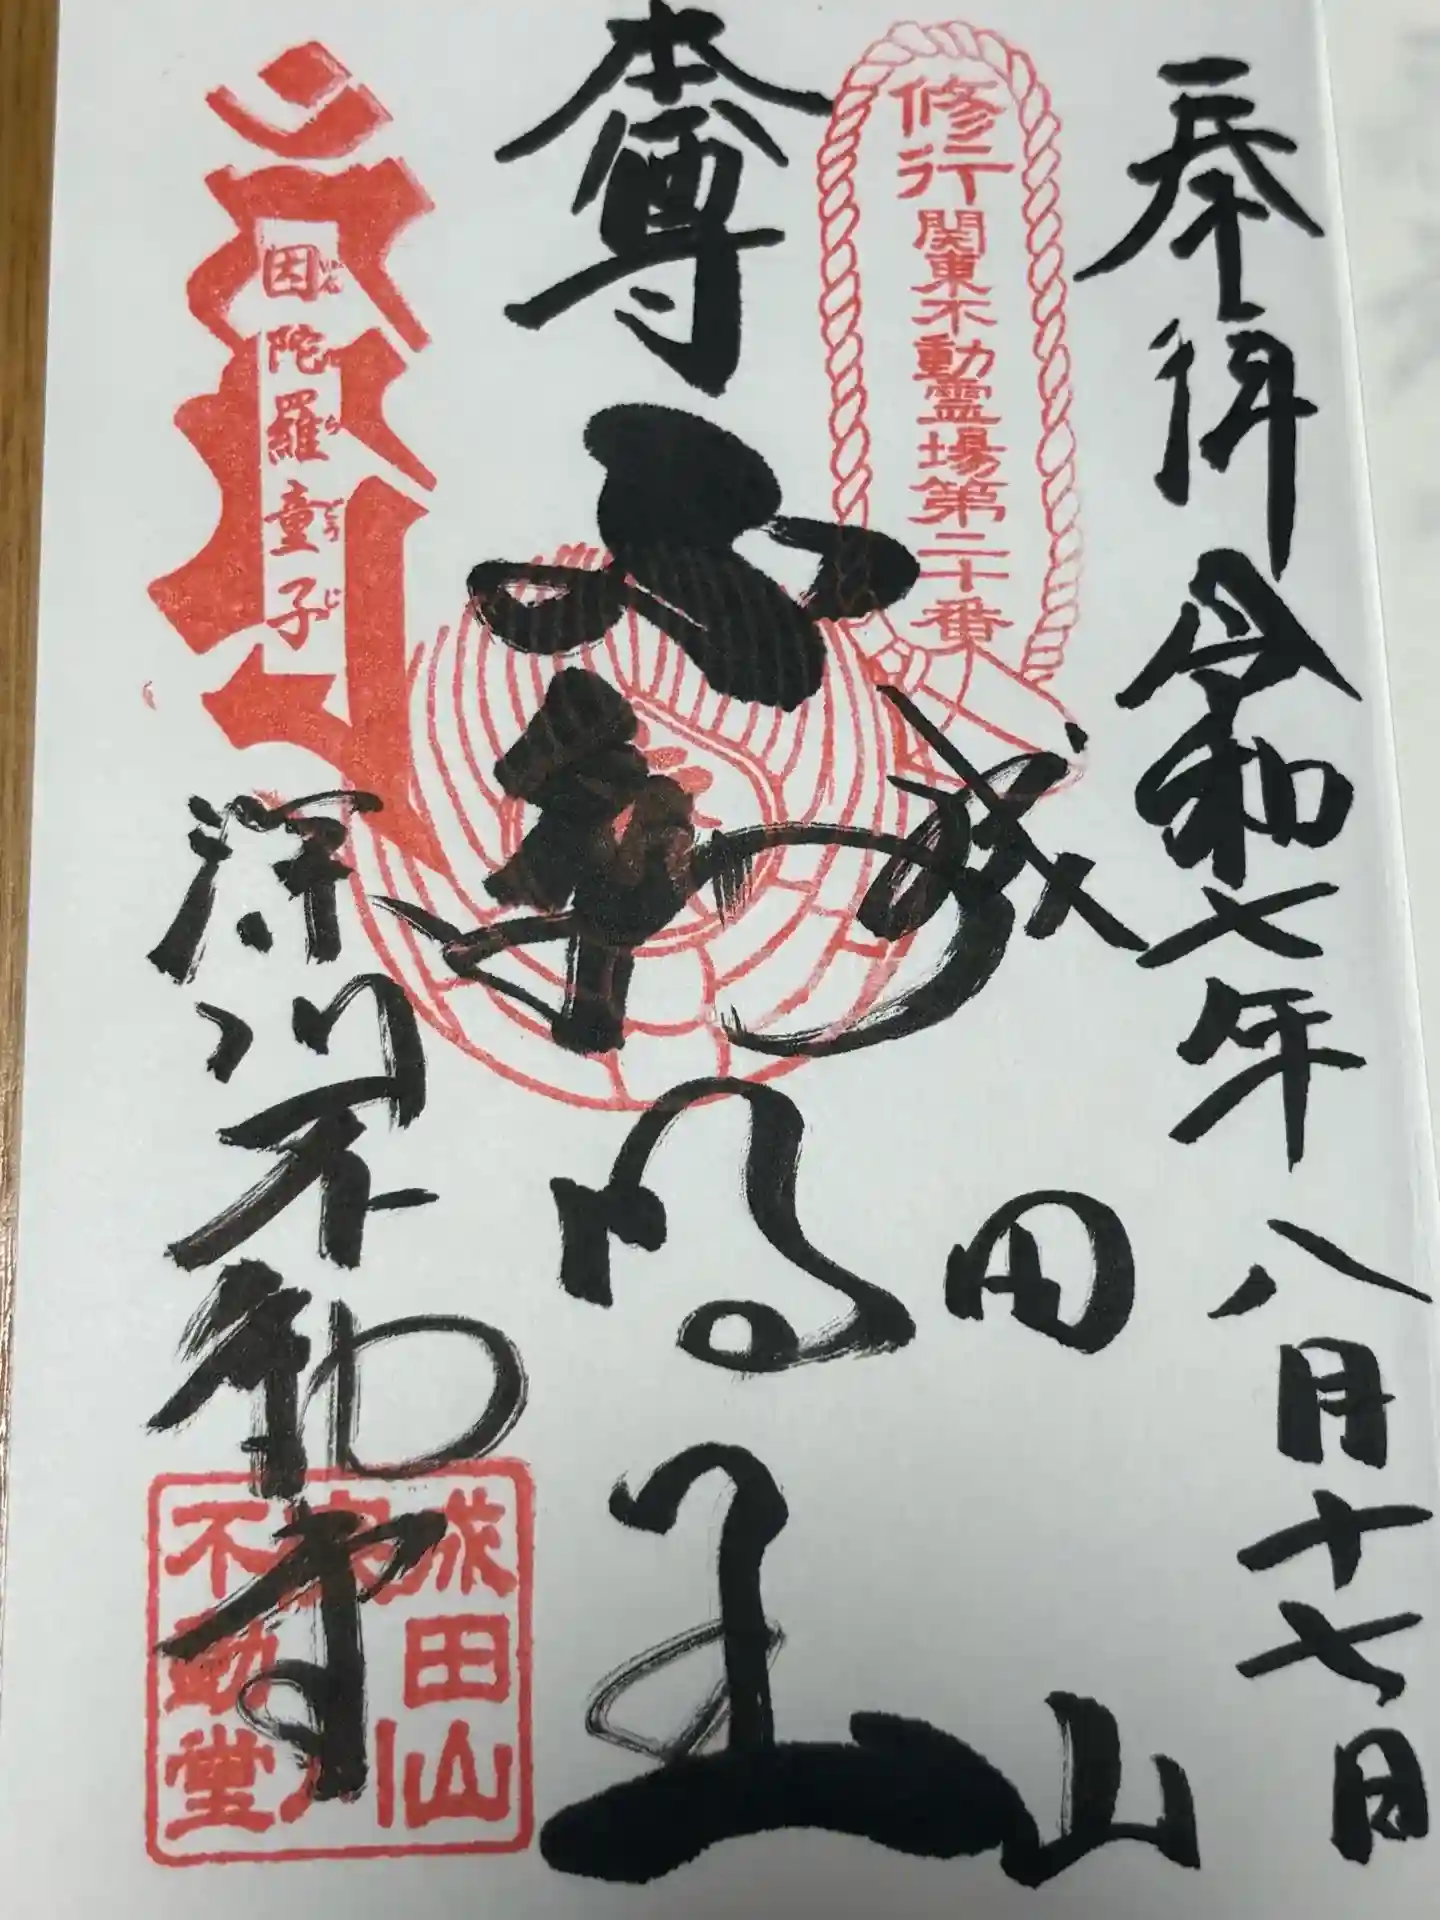 奉拝 令和七年八月十七日
修行 関東不動霊場第二十番
成田山
本尊 不動明王
因陀羅童子
いんだらどうじ
深川不動堂
成田山
深川
不動堂